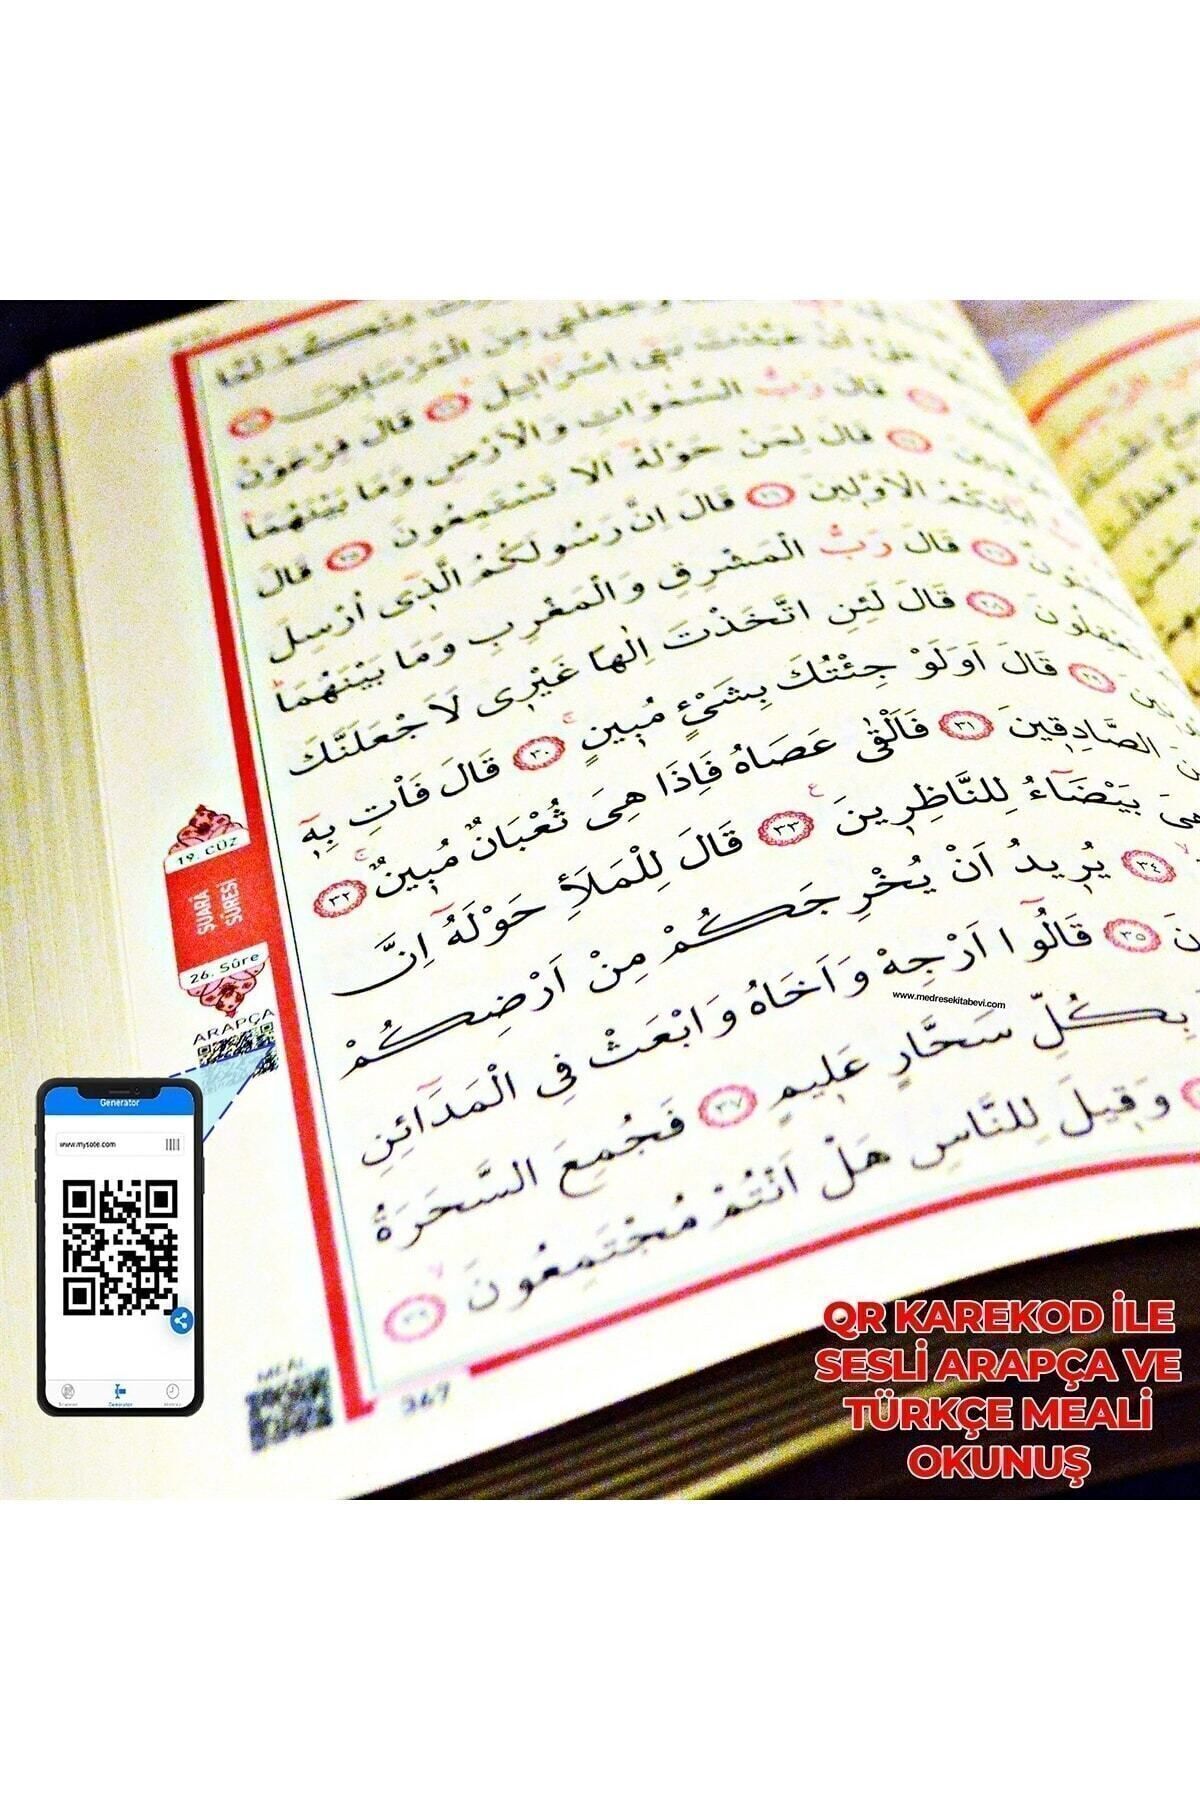 قَالَ فِرْعَوْنُ
قَالَ رَبُّ السَّمٰوَاتِ وَالْاَرْضِ وَمَا بَيْنَهُمَا
قَالَ لِمَنْ حَوْلَهُٓ اَلَا تَسْتَمِعُونَ ﴿٢٥﴾ قَالَ
اٰبَٓائِكُمُ الْاَوَّل۪ينَ ﴿٢٦﴾ قَالَ اِنَّ رَسُولَكُمُ الَّذ۪ٓي اُرْسِلَ
﴿٢٧﴾ قَالَ رَبُّ الْمَشْرِقِ وَالْمَغْرِبِ وَمَا بَيْنَهُمَا
تَعْقِلُونَ ﴿٢٨﴾ قَالَ لَئِنِ اتَّخَذْتَ اِلٰهًا غَيْر۪ي لَاَجْعَلَنَّكَ
﴿٢٩﴾ قَالَ اَوَلَوْ جِئْتُكَ بِشَيْءٍ مُب۪ينٍ ﴿٣٠﴾ قَالَ فَأْتِ بِه۪ٓ
الصَّادِق۪ينَ ﴿٣١﴾ فَاَلْقٰى عَصَاهُ فَاِذَا هِيَ ثُعْبَانٌ مُب۪ينٌ ﴿٣٢﴾
هِيَ بَيْضَٓاءُ لِلنَّاظِر۪ينَ ﴿٣٣﴾ قَالَ لِلْمَلَأِ حَوْلَهُٓ اِنَّ
﴿٣٤﴾ يُر۪يدُ اَنْ يُخْرِجَكُمْ مِنْ اَرْضِكُمْ
﴿٣٥﴾ قَالُٓوا اَرْجِهْ وَاَخَاهُ وَابْعَثْ فِي الْمَدَٓائِنِ
بِكُلِّ سَحَّارٍ عَل۪يمٍ ﴿٣٧﴾ فَجُمِعَ السَّحَرَةُ
وَق۪يلَ لِلنَّاسِ هَلْ اَنْتُمْ مُجْتَمِعُونَ ﴿٣٩﴾
19. CÜZ
ŞUARÂ
SÛRESİ
26. Sûre
ARAPÇA
www.medresekitabevi.com
Generator
www.mysote.com
Generator
MEÂL
367
QR KAREKOD İLE
SESLİ ARAPÇA VE
TÜRKÇE MEALİ
OKUNUŞ